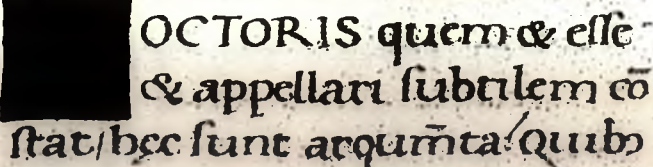 OCTORIS quem & eſſe
& appellari ſubtilem cō
ſtat/hec ſunt argum̄ta/Quibꝰ